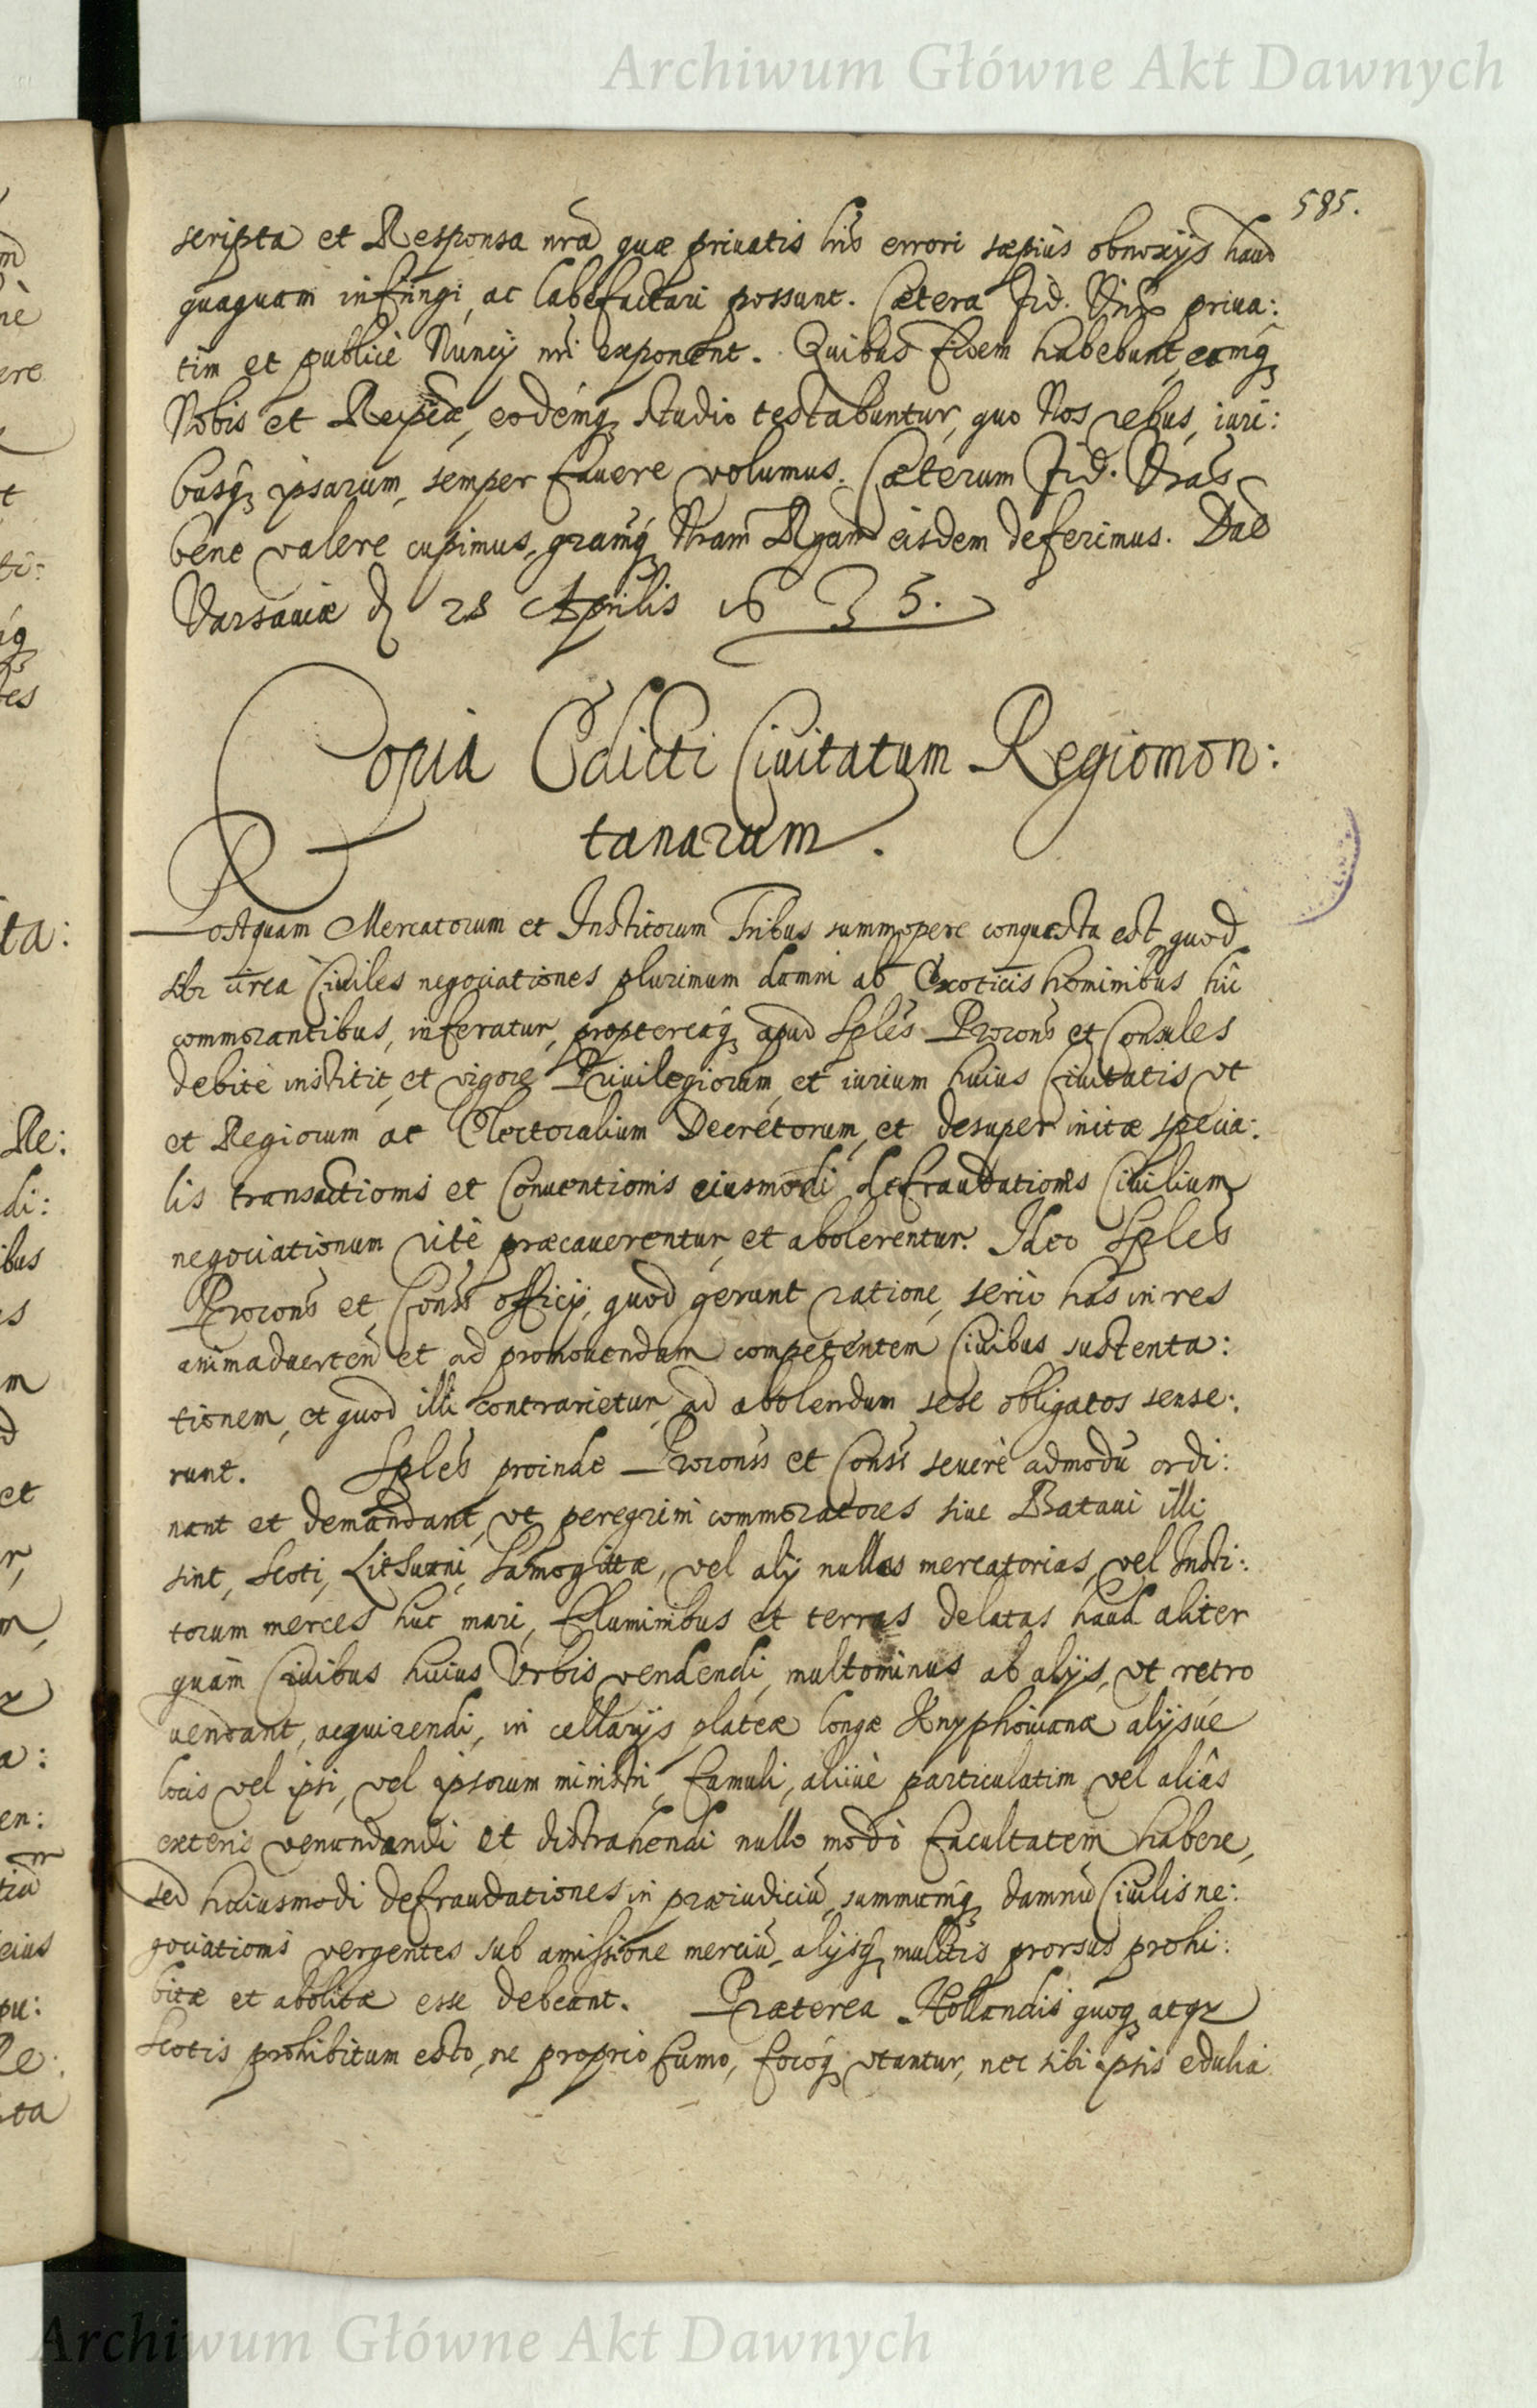 Archiwum Główne Akt Dawnych
585.
scripta et Responsa nrã quæ priuatis lris errori sæpiùs obnoxijs haud
quaquam infringi, ac labefactari possunt. Cætera Fid. Vris priua:
tim et publicè Nuncij nri exponent. Quibus fidem habebunt, eamq̃
Nobis et Reipcæ, eodémq̃ studio testabuntur, quo Nos rebus, iuri:
busq̃ ipsarum, semper fauere volumus. Cæterum Fid. Vras
bene valere cupimus, gramq̃ Nram Rgam eisdem deferimus. Dat
Varsauiæ d 28 Aprilis 1635.
Copia Edicti Ciuitatum Regiomon:
tanarum.
Postquam Mercatorum et Institorum Tribus summopere conquæsta est, quod
sibi circa Ciuiles negociationes plurimum damni ab Exoticis hominibus hîc
commorantibus, inferatur, proptereáq̃ apud Sples Procons et Consules
debitè institit, et vigore Priuilegiorum, et iurium huius Ciuitatis vt
et Regiorum ac Electoralium Decretorum, et desuper initæ specia:
lis transactionis et Conuentionis eiusmodi defraudationes Ciuilium
negociationum ritè præcauerentur et abolerentur. Ideo Sples
Procons et Conss officij, quod gerunt ratione, seriò has in res
animaduerten et ad promouendam competentem Ciuibus sustenta:
tionem, et quod illi contrarietur, ad abolendum sese obligatos sense:
runt. Sples proinde Proconss et Conss seuerè admodũ ordi:
nant et demandant, vt peregrini commoratores siue Bataui illi
sint, Scoti, Lithuani, Samogittæ, vel alij nullas mercatorias, vel Insti:
torum merces huc mari, fluminibus et terras delatas haud aliter
quàm Ciuibus huius Vrbis vendendi, multominus ab alijs, vt retro
uendant, acquirendi, in cellarijs plateæ longæ Knyphouianæ alijsue
locis vel ipsi, vel ipsorum ministri, famuli, aliiuè particulatim vel aliâs
exteris venundandi et distrahendi nullo modo facultatem habere,
sed huiusmodi defraudationes in præiudiciũ, summumq̃ damnũ Ciuilis ne:
gociationis vergentes sub amissione merciũ, alijsq̃ mulctis prorsus prohi:
bitæ et abolitæ esse debeant. Præterea Hollandis quoq̃ atq̃
Scotis prohibitum esto, ne proprio fumo, focóq̃ vtantur, nec sibi ipsis edulia
Archiwum Główne Akt Dawnych